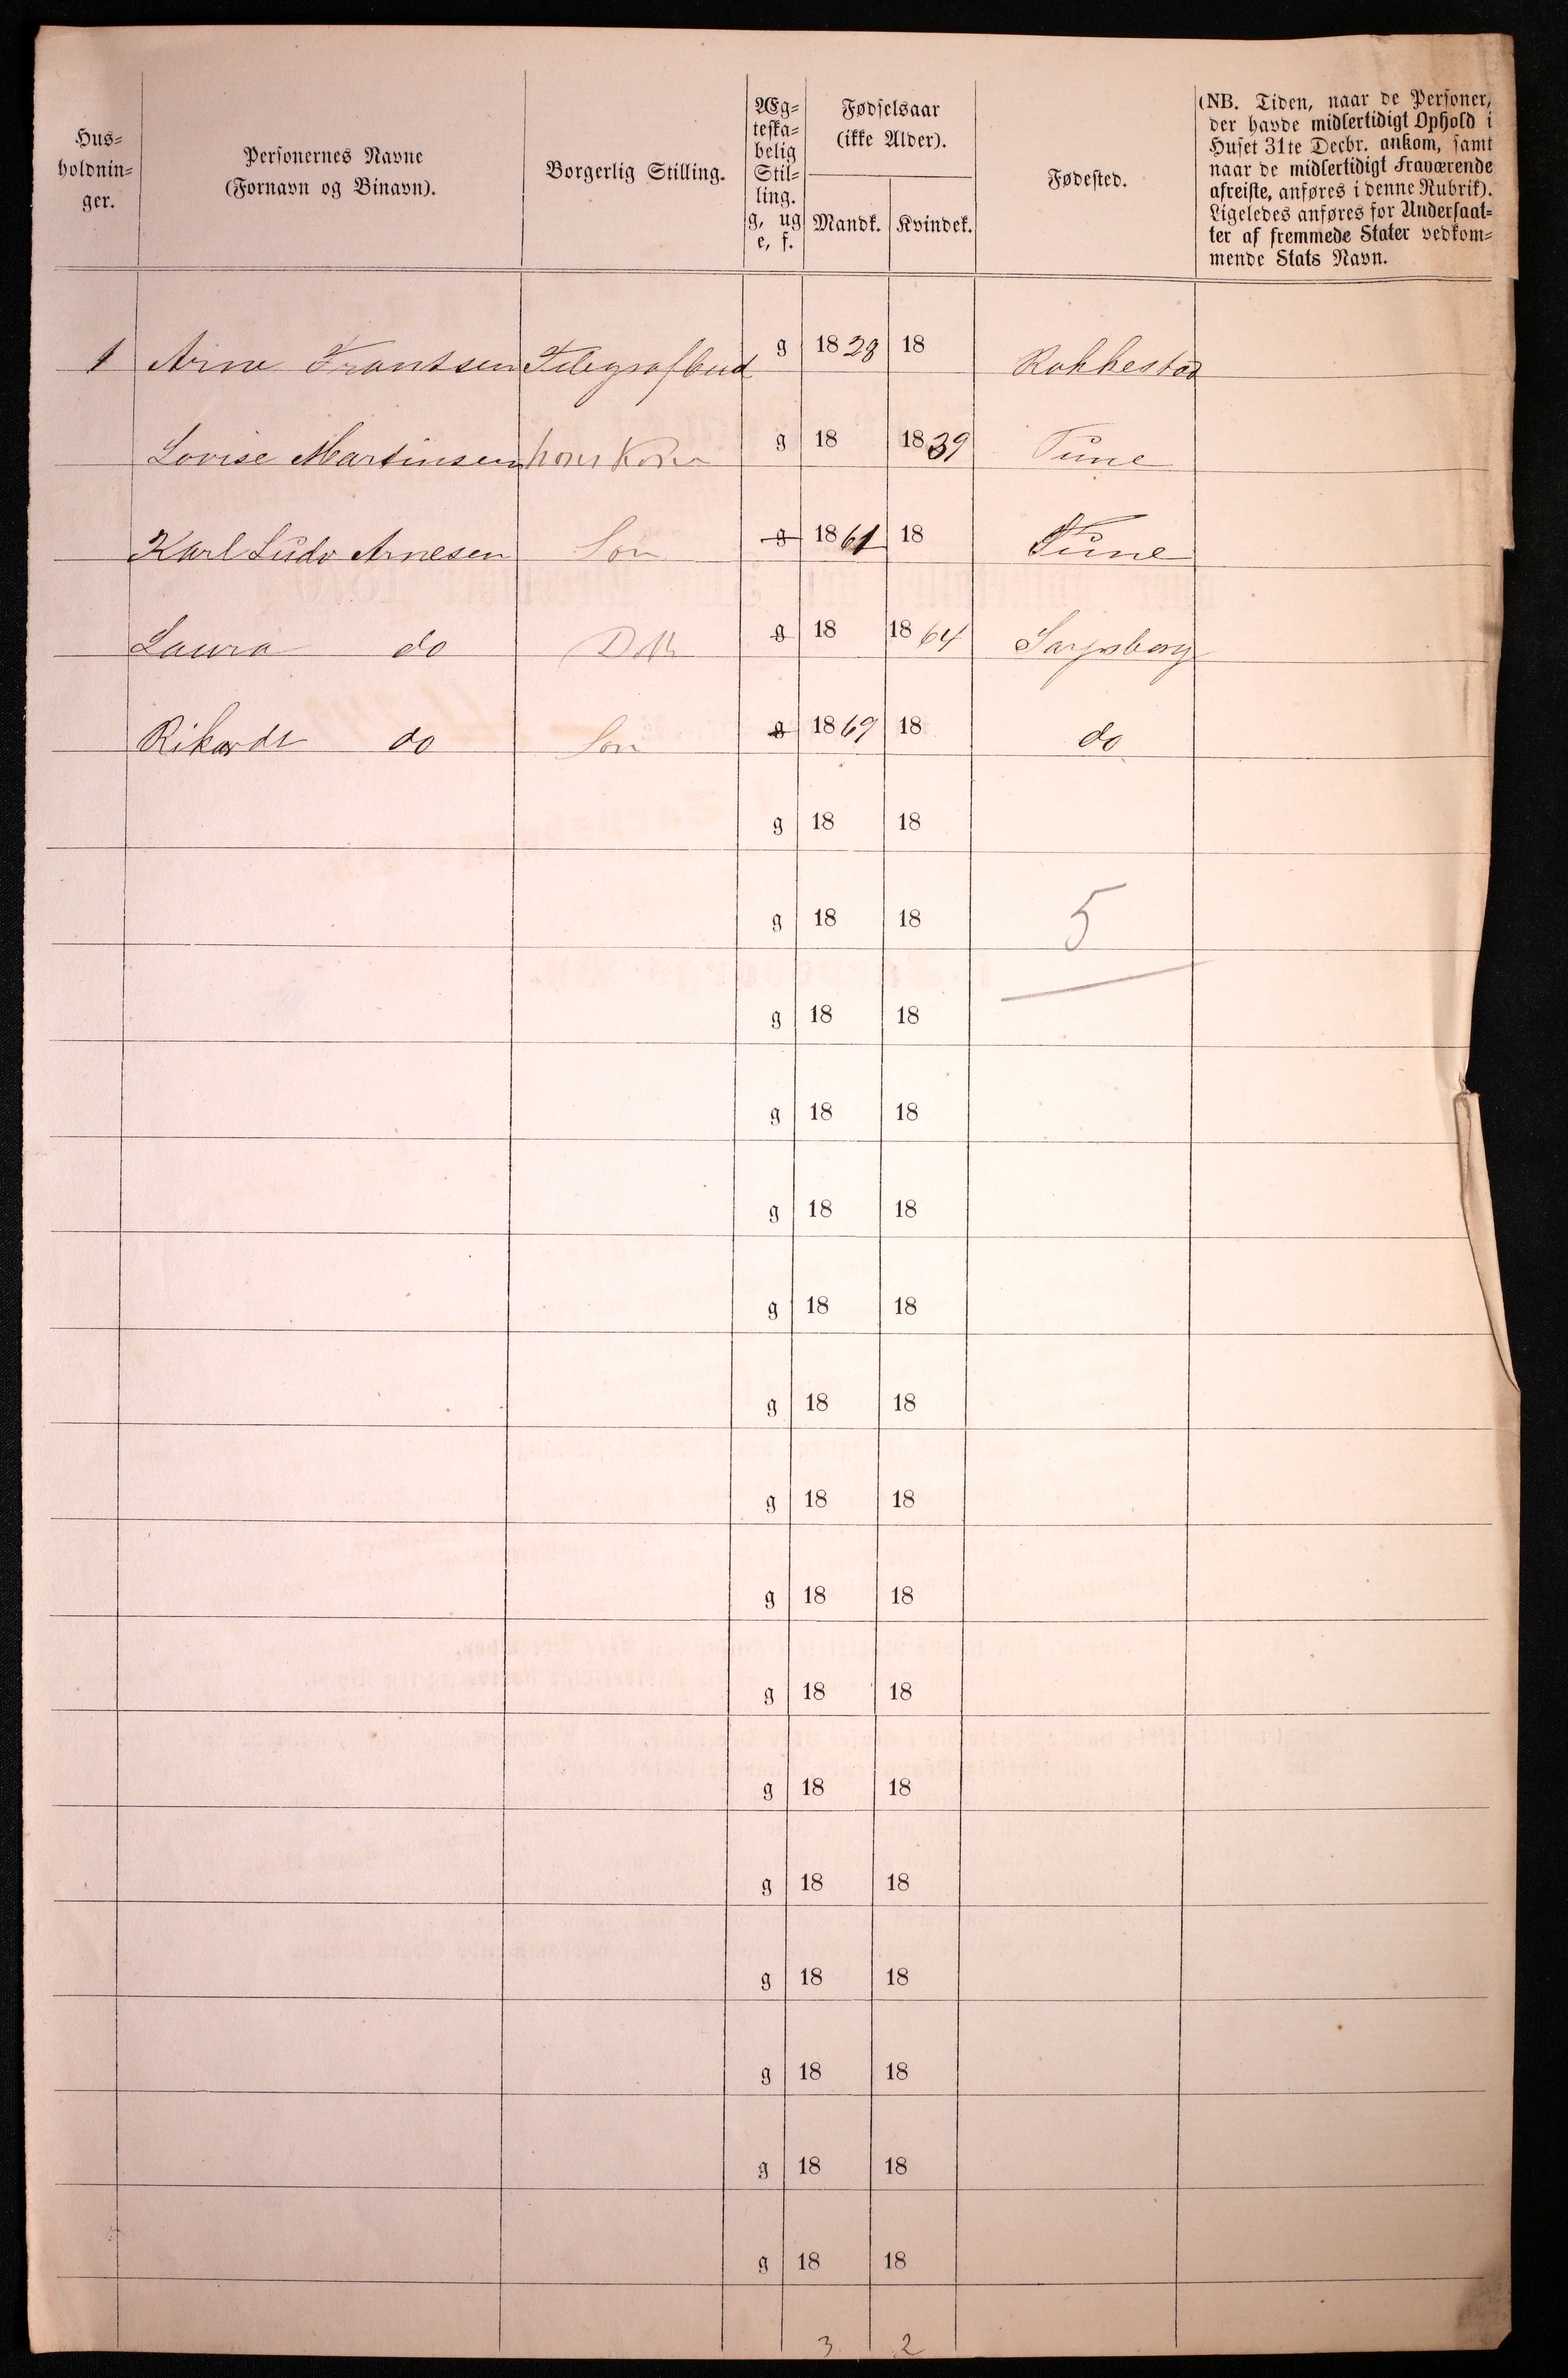 Hus=
holdnin=
ger.
Personernes Navne
(Fornavn og Binavn).
Borgerlig Stilling.
Æg=
teska=
belig
Stil=
ling.
g, ug
e, f.
Fødselsaar
(ikke Alder).
Mandk. Kvindek.
Fødested.
(NB. Tiden, naar de Personer,
der havde midlertidigt Ophold i
Huset 31te Decbr. ankom, samt
naar de midlertidigt Fraværende
afreiste, anføres i denne Rubrik).
Ligeledes anføres for Undersaat=
ter af fremmede Stater vedkom=
mende Stats Navn.
1 Arne Frantsen Telegrafbud g 1828 18 Rakkestad
Lovise Martinsen hans Kone g 18 1839 Tune
Karl Ludv Arnesen Søn g 1861 18 Tune
Laura do Dttr g 18 1864 Sarpsborg
Rikardt do Søn g 1869 18 do
g 18 18
g 18 18 5
g 18 18
g 18 18
g 18 18
g 18 18
g 18 18
g 18 18
g 18 18
g 18 18
g 18 18
g 18 18
g 18 18
g 18 18
g 18 18
g 18 18
3 2